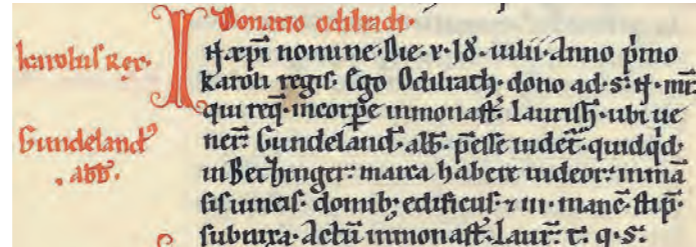 Donatio odilradi.
karolus Rex.
In xp̄i nomine. Die. v. Id. iulii. Anno p̄mo
karoli regis. Ego Odilrath. dono ad. s. N. mr̄.
qui req̄. in corpe in monast̄. Laurish̄. ubi ue
Gundeland᾽
abb̄.
ner̄. Gundeland᾽. abb̄. p̄esse uidet̄. quidqd
in Bechinger. marca habere uideor. in mā
sis iuncis. domib; edificiis. ⁊ iii. manc̄. stip̄.
subnixa. Actū in monast̄. Laur̄. t̄. q. s.